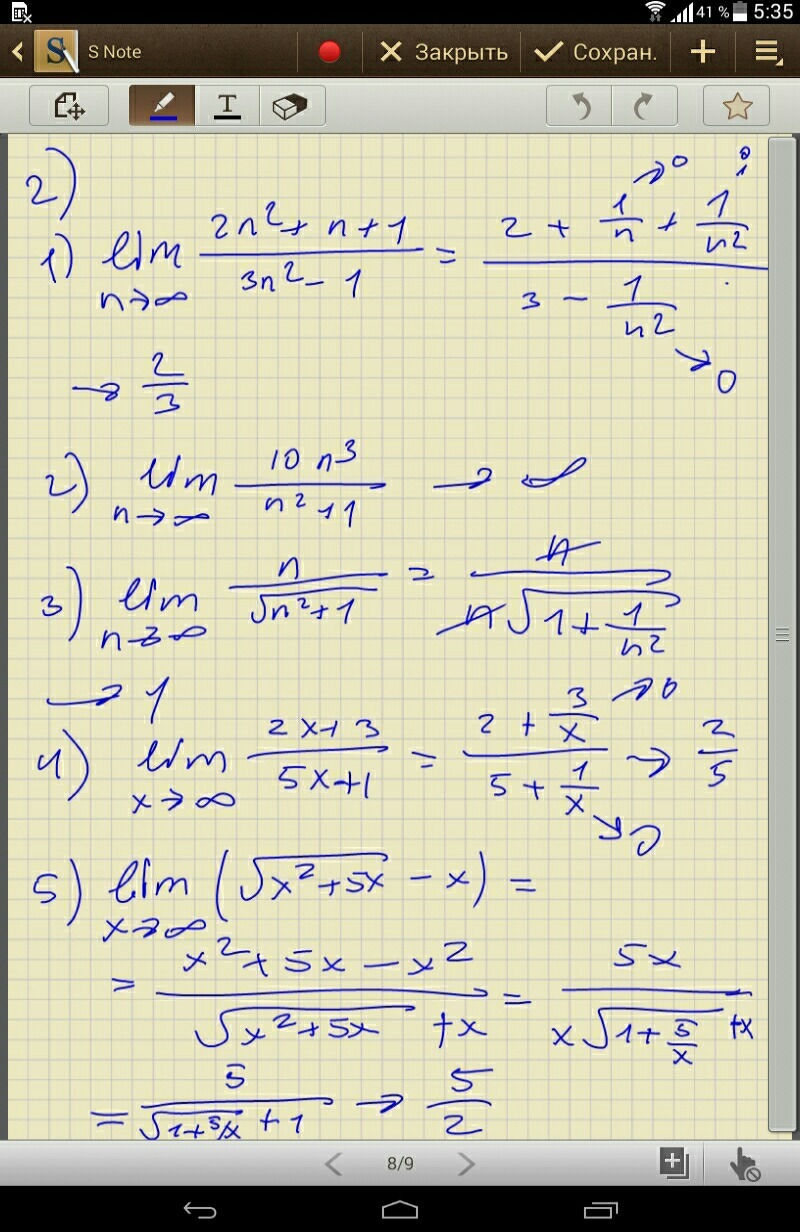 41 % 5:35
S Note Закрыть Сохран.
T
2)
1) lim n→∞ (2n² + n + 1)/(3n² - 1) = (2 + 1/n + 1/n²)/(3 - 1/n²) →0 →0
→ 2/3
2) lim n→∞ 10n³/(n² + 1) → ∞
3) lim n→∞ n/√(n² + 1) = n/(n√(1 + 1/n²))
→ 1
4) lim x→∞ (2x + 3)/(5x + 1) = (2 + 3/x)/(5 + 1/x) → 2/5 →0 →0
5) lim x→∞ (√(x² + 5x) - x) =
= (x² + 5x - x²)/(√(x² + 5x) + x) = 5x/(x√(1 + 5/x) + x)
= 5/(√(1 + 5/x) + 1) → 5/2
8/9